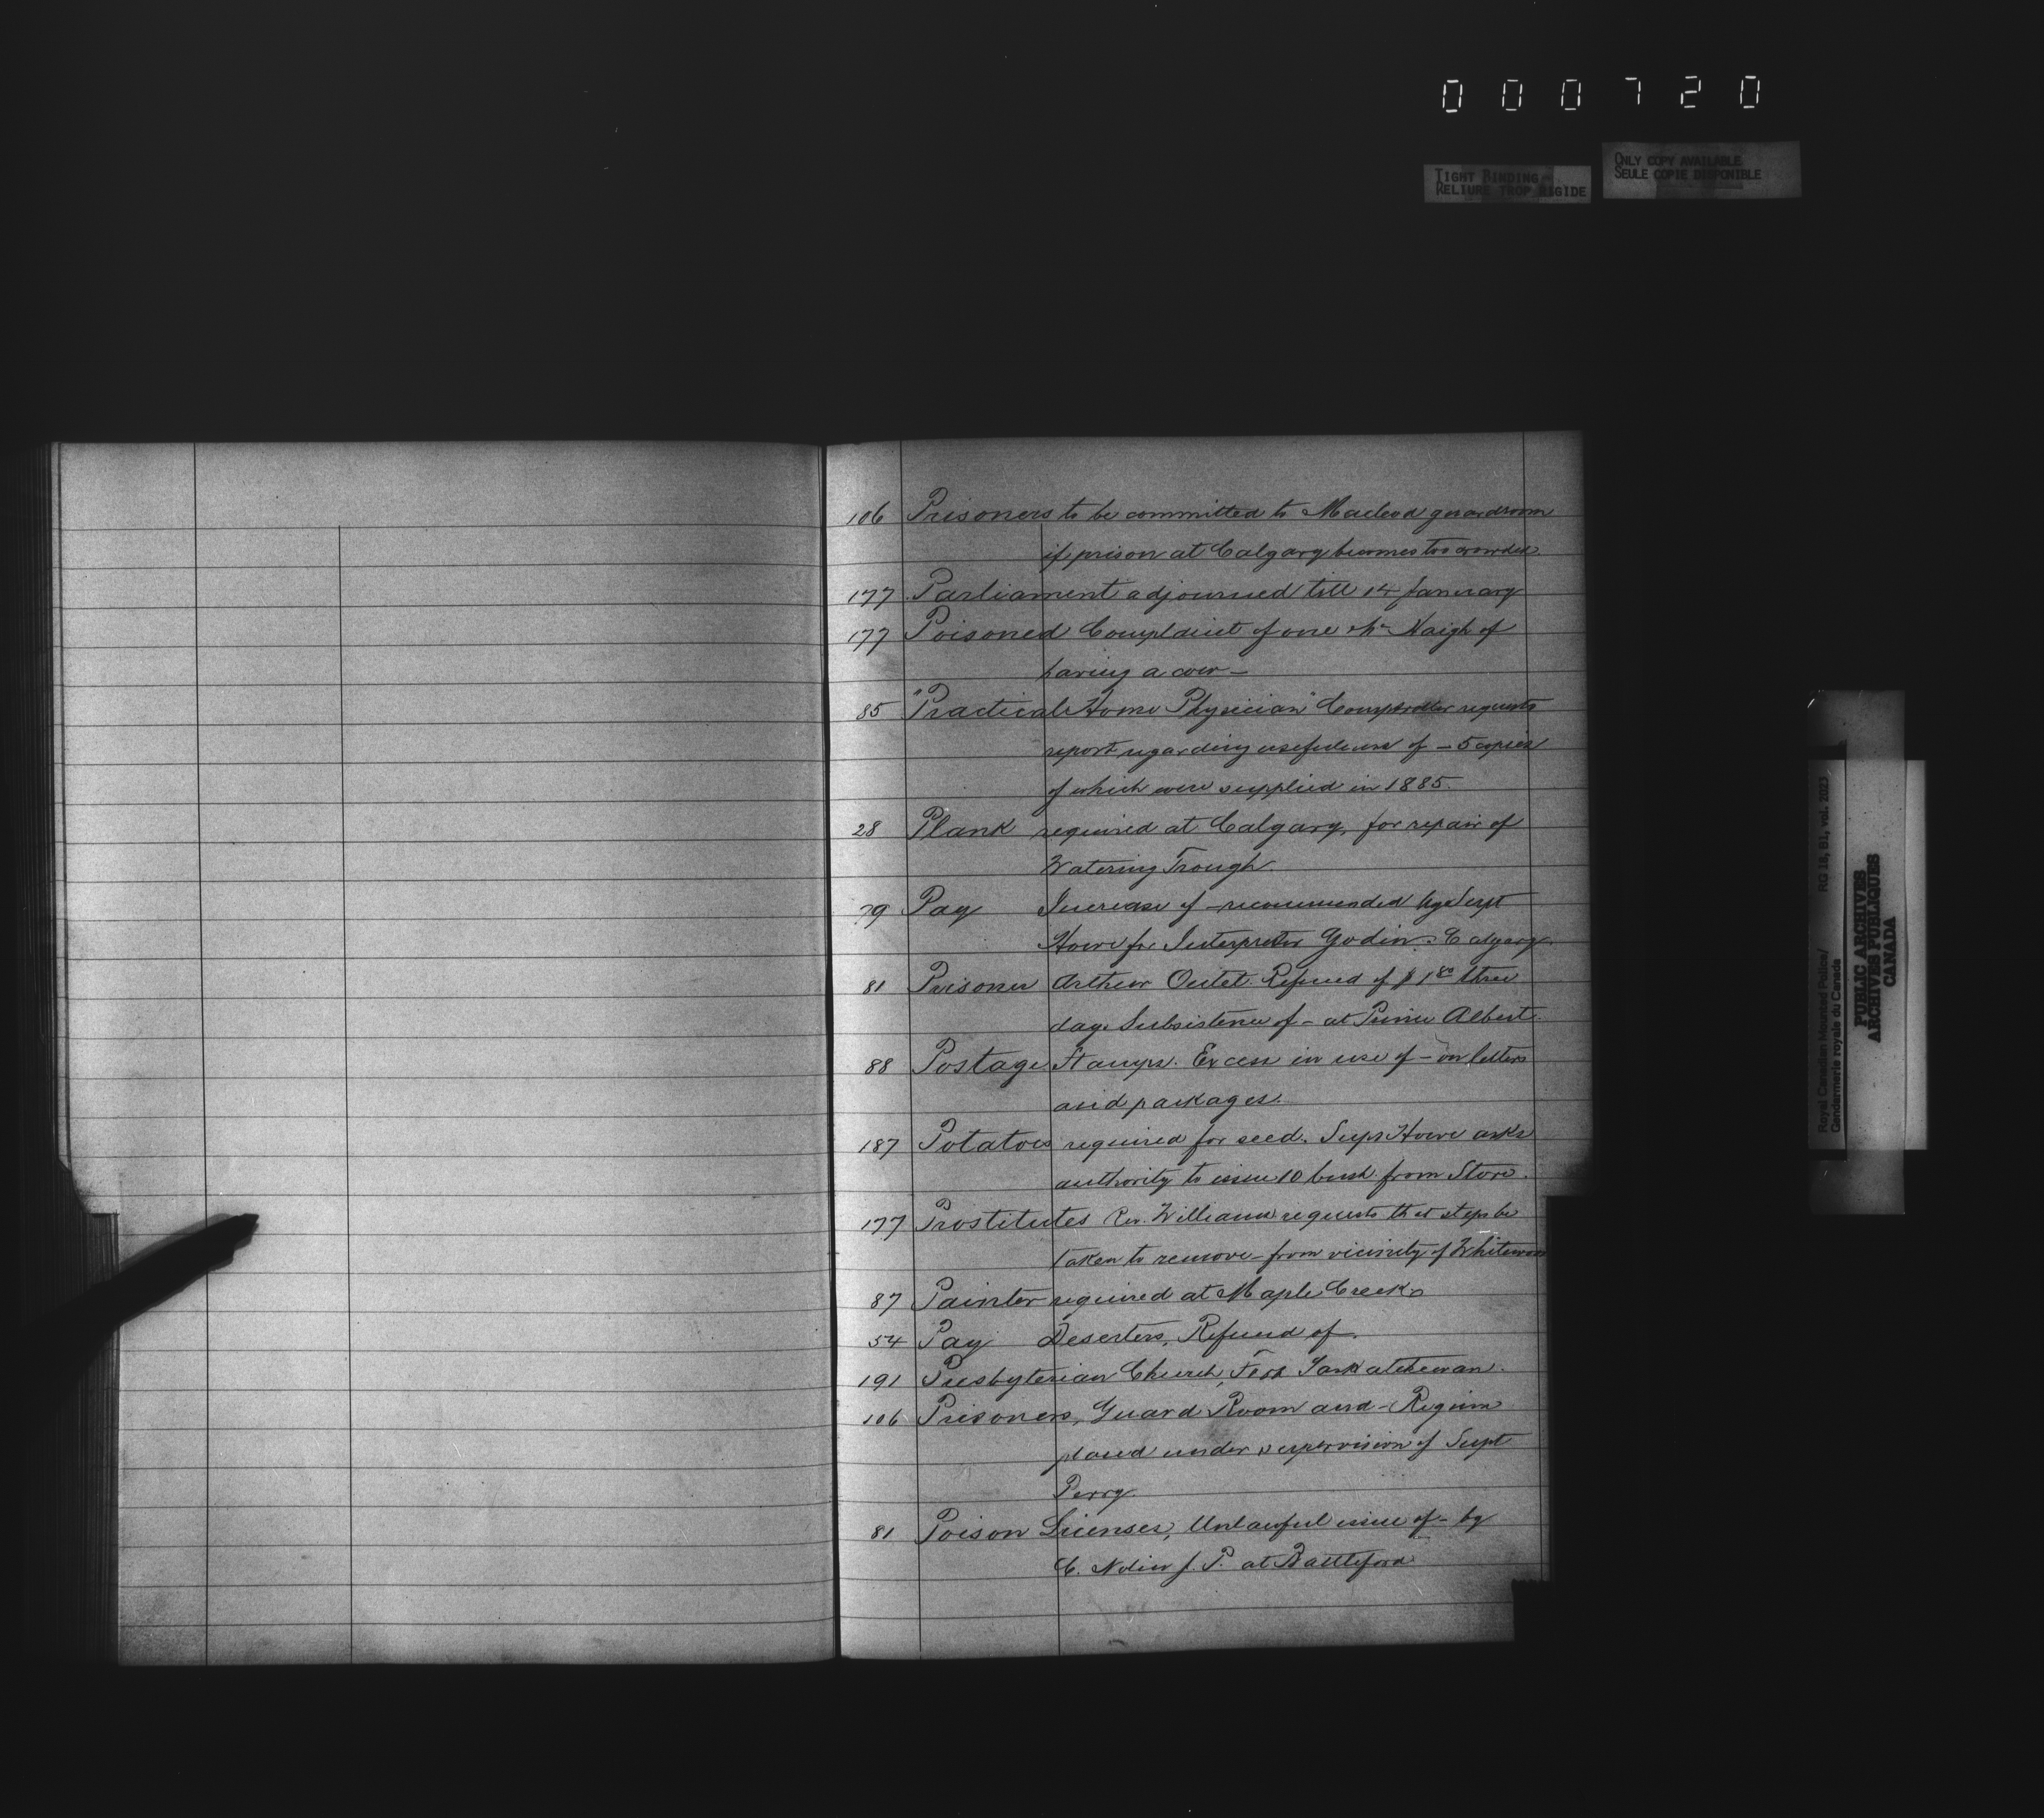 000720
TIGHT BINDING
RELIURE TROP RIGIDE
ONLY COPY AVAILABLE
SEULE COPIE DISPONIBLE
106 Prisoners to be committed to Macleod guardroom
if prison at Calgary becomes too crowded.
177 Parliament adjourned till 14 January
177 Poisoned Complaint of one Mc Naigh of
having a cow —
85 "Practical Home Physician" Comptroller requests
report regarding usefulness of — 5 copies
of which were supplied in 1885.
28 Plank required at Calgary, for repair of
Watering Trough.
79 Pay Increase of — recommended by Supt
Howe for Interpreter Godin. Calgary.
81 Prisoner Arthur Outet. Refund of $1 80 three
days Subsistence of — at Prince Albert.
88 Postage Stamps. Excess in use of — on letters
and packages.
187 Potatoes required for seed. Supt Howe asks
authority to issue 10 bush. from Store.
177 Prostitutes Rev. Williams requests that steps be
taken to remove — from vicinity of Whitewood
87 Painter required at Maple Creek
54 Pay Deserters, Refund of.
191 Presbyterian Church, Fort Saskatchewan.
106 Prisoners, Guard Room and — Regina
placed under supervision of Supt
Perry.
81 Poison Licenses, Unlawful issue of — by
C. Nolin J. P. at Battleford
Royal Canadian Mounted Police/
Gendarmerie royale du Canada
RG 18, B1, vol. 2023
PUBLIC ARCHIVES
ARCHIVES PUBLIQUES
CANADA